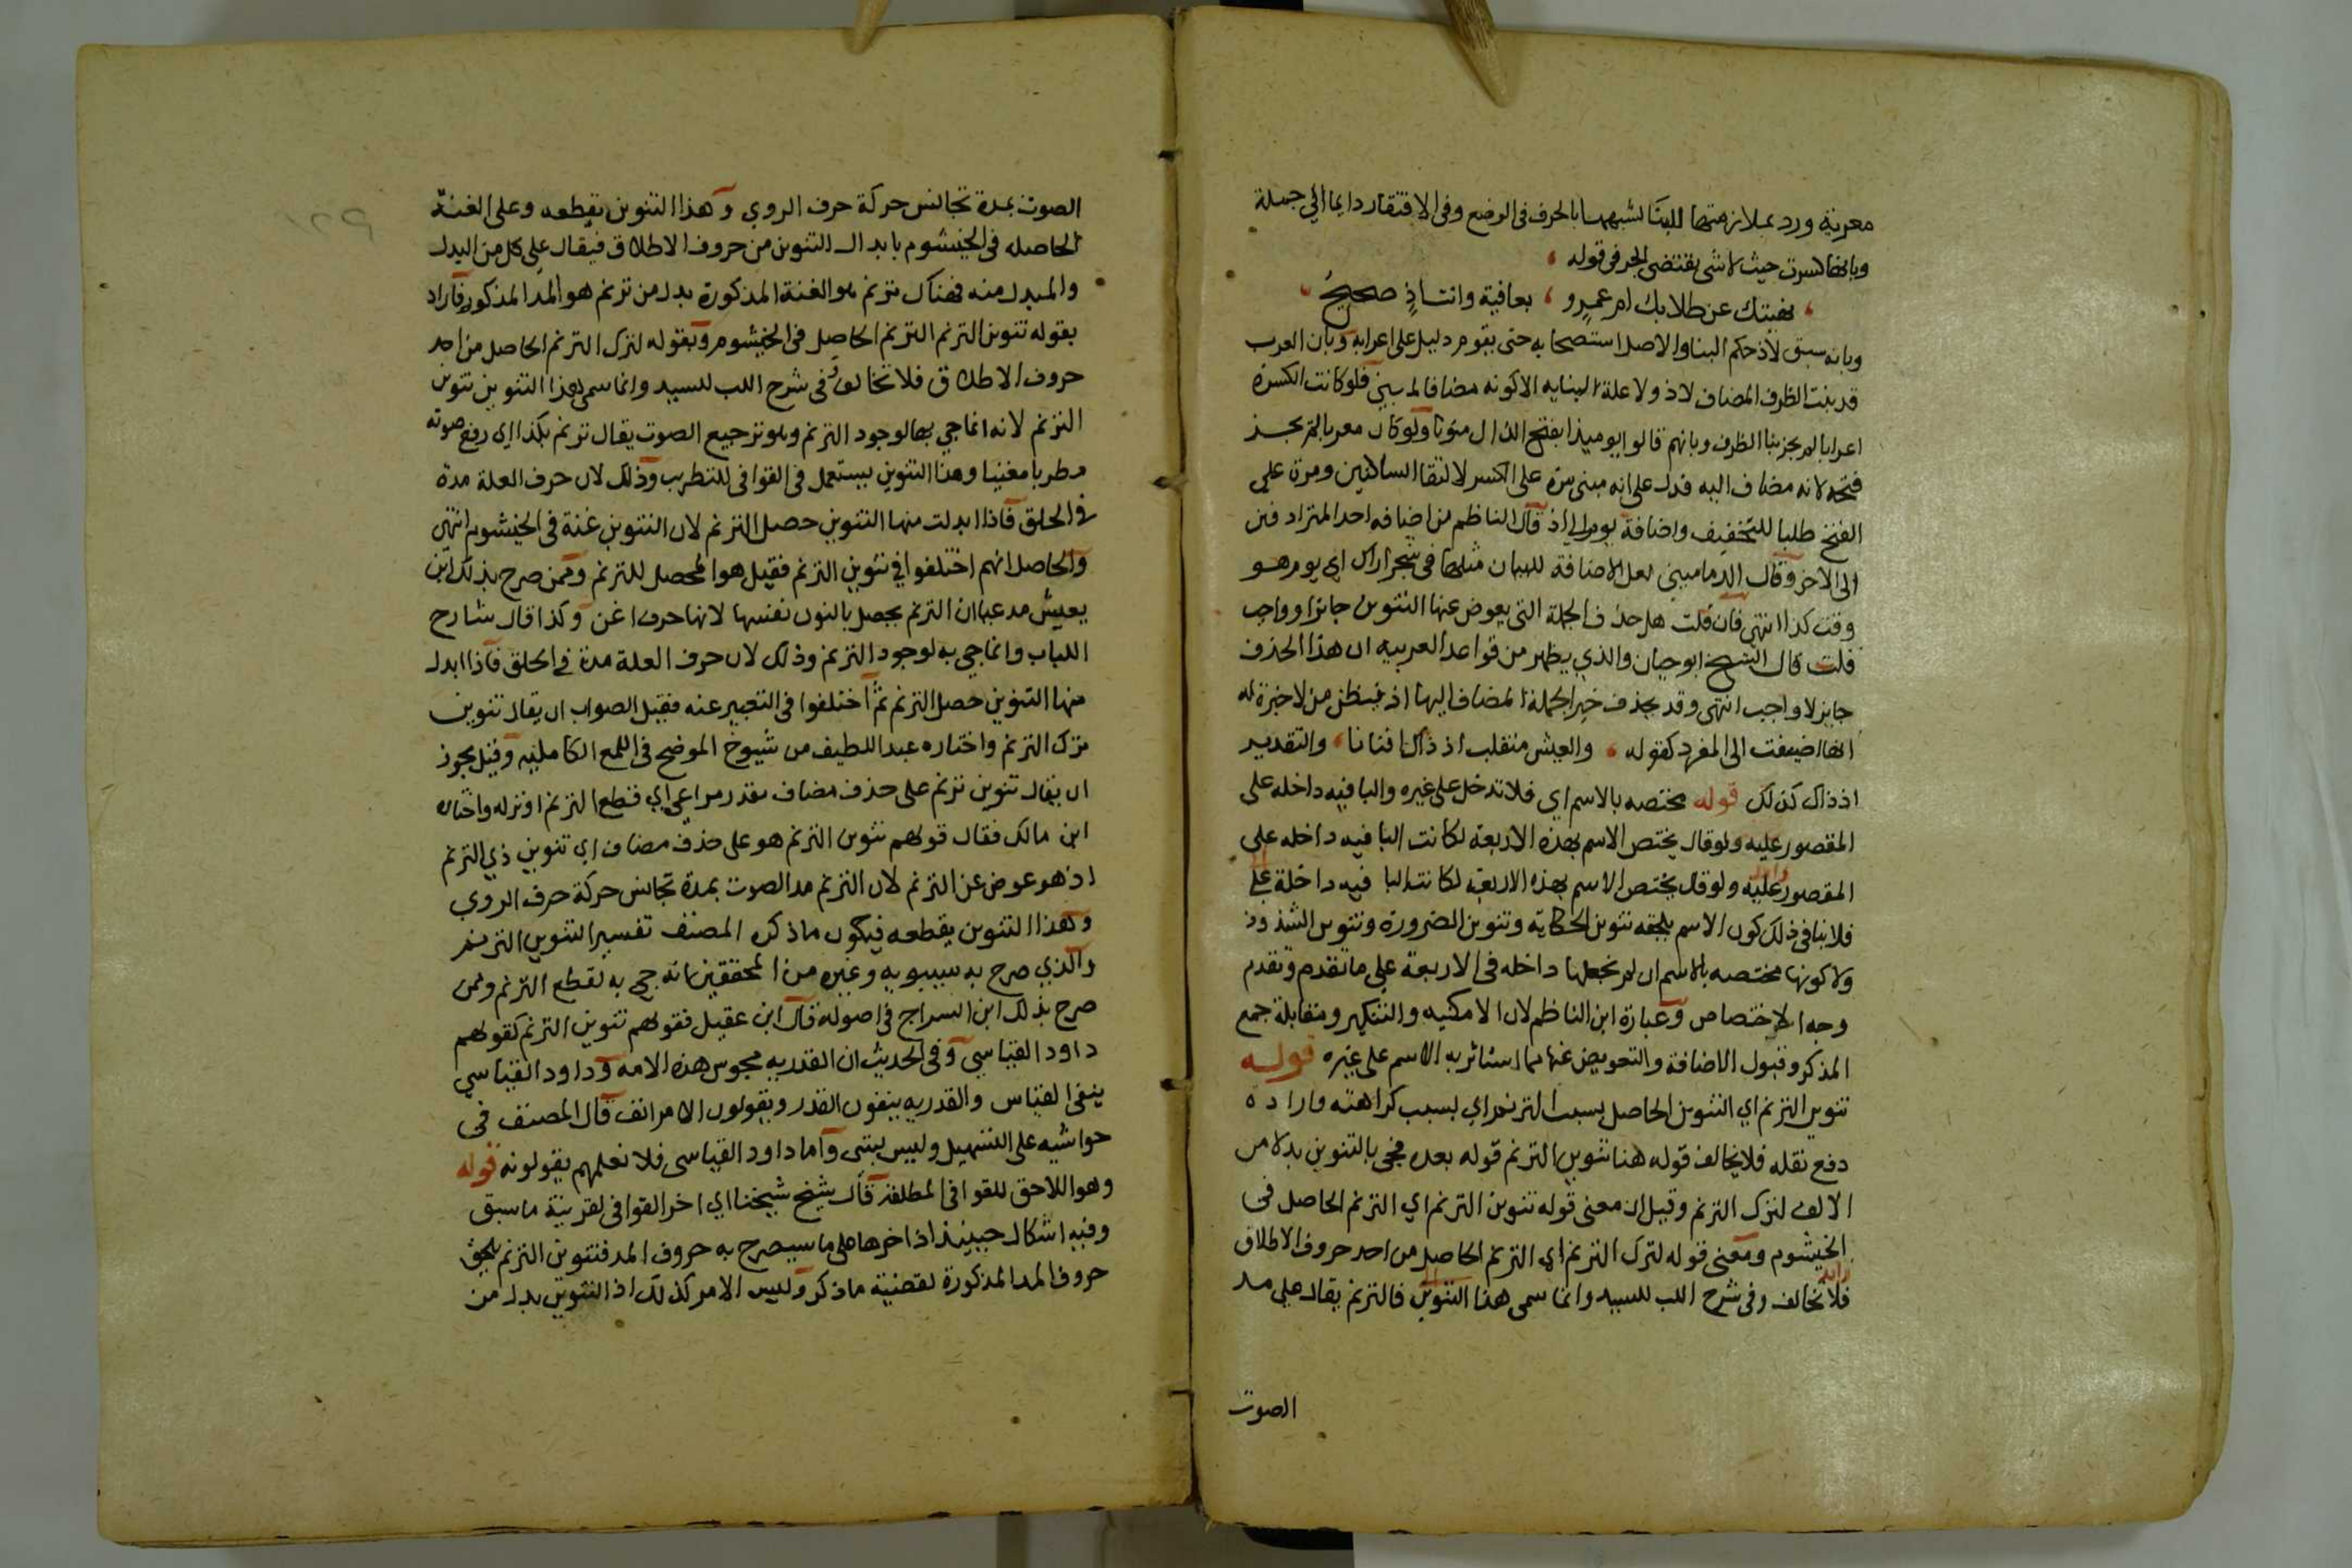 معربة ورد بملازمتها للبنا لشبهها بالحرف فى الوضع وفى الافتقار دايما الي جملة
وبانها كسرت حيث لا شى يقتضى الجر فى قوله
نهيتك عن طلابك ام عمرو ، بعافية وانت اذٍ صحيحُ
وبانه سبق لاذ حكم البنا والاصل استصحابه حتى يقوم دليل على اعرابه وبان العرب
قد بنت الظرف المضاف لاذ ولا علة لبنايه الا كونه مضافا لمبنى فلو كانت الكسرة
اعرابا لم يجز بنا الظرف وبانهم قالوا يوميذا بفتح الذال منونا ولو كان معربا لم يجز
فتحه لانه مضاف اليه فدل على انه مبنى مرة على الكسر لالتقا الساكنين ومرة علي
الفتح طلبا للتخفيف واضافة يوم الي اذ قال الناظم من اضافه احد المترادفين
الى الاخر وقال الدمامينى لعل الاضافة للبيان مثلها فى شجر اراك اى يوم هو
وقت كذا انتهى فان قلت هل حذف الجملة التى يعوض عنها التنوين جايز او واجب
قلت قال الشيخ ابو حيان والذي يظهر من قواعد العربيه ان هذا الحذف
جايز لا واجب انتهى وقد يحذف خبر الجملة المضاف اليها اذ فيظن من لا خبرة له
انها اضيفت الى المفرد كقوله ، والعيش منقلب اذ ذاك افنانا ، والتقدير
اذ ذاك كذلك قوله مختصه بالاسم اي فلا تدخل على غيره والبا فيه داخله على
المقصور عليه ولو قال يختص الاسم بهذه الاربعة لكانت البا فيه داخله على
المقصور عليه ولو قال يختص الاسم بهذه الاربعه لكانت البا فيه داخلة على
فلا ينافى ذلك كون الاسم يلحقه تنوين الحكاية وتنوين الضرورة وتنوين الشذوذ
ولا كونها مختصه بالاسم ان لم نجعلها داخله فى الاربعة علي ما تقدم وتقدم
وجه الاختصاص وعبارة ابن الناظم لان الامكنيه والتنكير ومقابلة جمع
المذكر وقبول الاضافة والتعويض عنها مما استاثر به الاسم على غيره قوله
تنوين الترنم اي التنوين الحاصل بسبب الترنم اي بسبب كراهته وارادة
دفع نقله فلا يخالف قوله هنا تنوين الترنم قوله بعده فجى بالتنوين بدلا من
الالف لترك الترنم وقيل ان معنى قوله تنوين الترنم اي الترنم الحاصل فى
الخيشوم ومعنى قوله لترك الترنم اى الترنم الحاصل من احد حروف الاطلاق
فلا تخالف وفى شرح اللب للسيد وانما سمى هذا التنوين فالترنم يقال علي مد
الصوت
الصوت بمدة تجانس حركة حرف الروي وهذا التنوين يقطعه وعلى الغنة
الحاصله فى الخيشوم بابدال التنوين من حروف الاطلاق فيقال على كل من البدل
والمبدل منه فهناك ترنم هو الغنة المذكورة بدل من ترنم هو المد المذكور فاراد
بقوله تنوين الترنم الترنم الحاصل فى الخيشوم وبقوله لترك الترنم الحاصل من احد
حروف الاطلاق فلا تخالف وفى شرح اللب للسيد وانما سمى هذا التنوين تنوين
الترنم لانه انما جي بها لوجود الترنم وهو ترجيع الصوت يقال ترنم بكذا اى رفع صوته
مطربا مغنيا وهذا التنوين يستعمل فى القوافى للتطريب وذلك لان حرف العلة مدة
فى الحلق فاذا ابدلت منها التنوين حصل الترنم لان التنوين غنة فى الخيشوم انتهى
والحاصل انهم اختلفوا في تنوين الترنم فقيل هو المحصل للترنم وممن صرح بذلك ابن
يعيش مدعيا ان الترنم يحصل بالنون نفسها لانها حرف اغن وكذا قال شارح
اللباب وانما جي به لوجود الترنم وذلك لان حرف العلة مدة في الحلق فاذا ابدل
منها التنوين حصل الترنم ثم اختلفوا فى التعبير عنه فقيل الصواب ان يقال تنوين
ترك الترنم واختاره عبد اللطيف من شيوخ الموضح فى اللمع الكامليه وقيل يجوز
ان يقال تنوين ترنم على حذف مضاف مقدر مراعى اي قطع الترنم او تركه واختاره
ابن مالك فقال قولهم تنوين الترنم هو على حذف مضاف اي تنوين ذي الترنم
اذ هو عوض عن الترنم لان الترنم مد الصوت بمدة تجانس حركة حرف الروي
وهذا التنوين يقطعه فيكون ما ذكره المصنف تفسيرا لتنوين الترنم
والذي صرح به سيبويه وغيره من المحققين انه جى به لقطع الترنم وممن
صرح بذلك ابن السراج فى اصوله قال ابن عقيل فقولهم تنوين الترنم كقولهم
داود القياسي وفى الحديث ان القدريه مجوس هذه الامة وداود القياسي
ينفى القياس والقدريه ينفون القدر ويقولون الامر انف قال المصنف فى
حواشيه على التسهيل وليس بشى واما داود القياسى فلا نعلمهم يقولونه قوله
وهو اللاحق للقوافى المطلقة قال شيخ شيخنا اي اخر القوافى لقرينة ما سبق
وفيه اشكال حينيذ اذ اخرها على ما سيصرح به حروف المد فتنوين الترنم يلحق
حروف المد المذكورة لقضية ما ذكر وليس الامر كذلك اذ التنوين بدل من